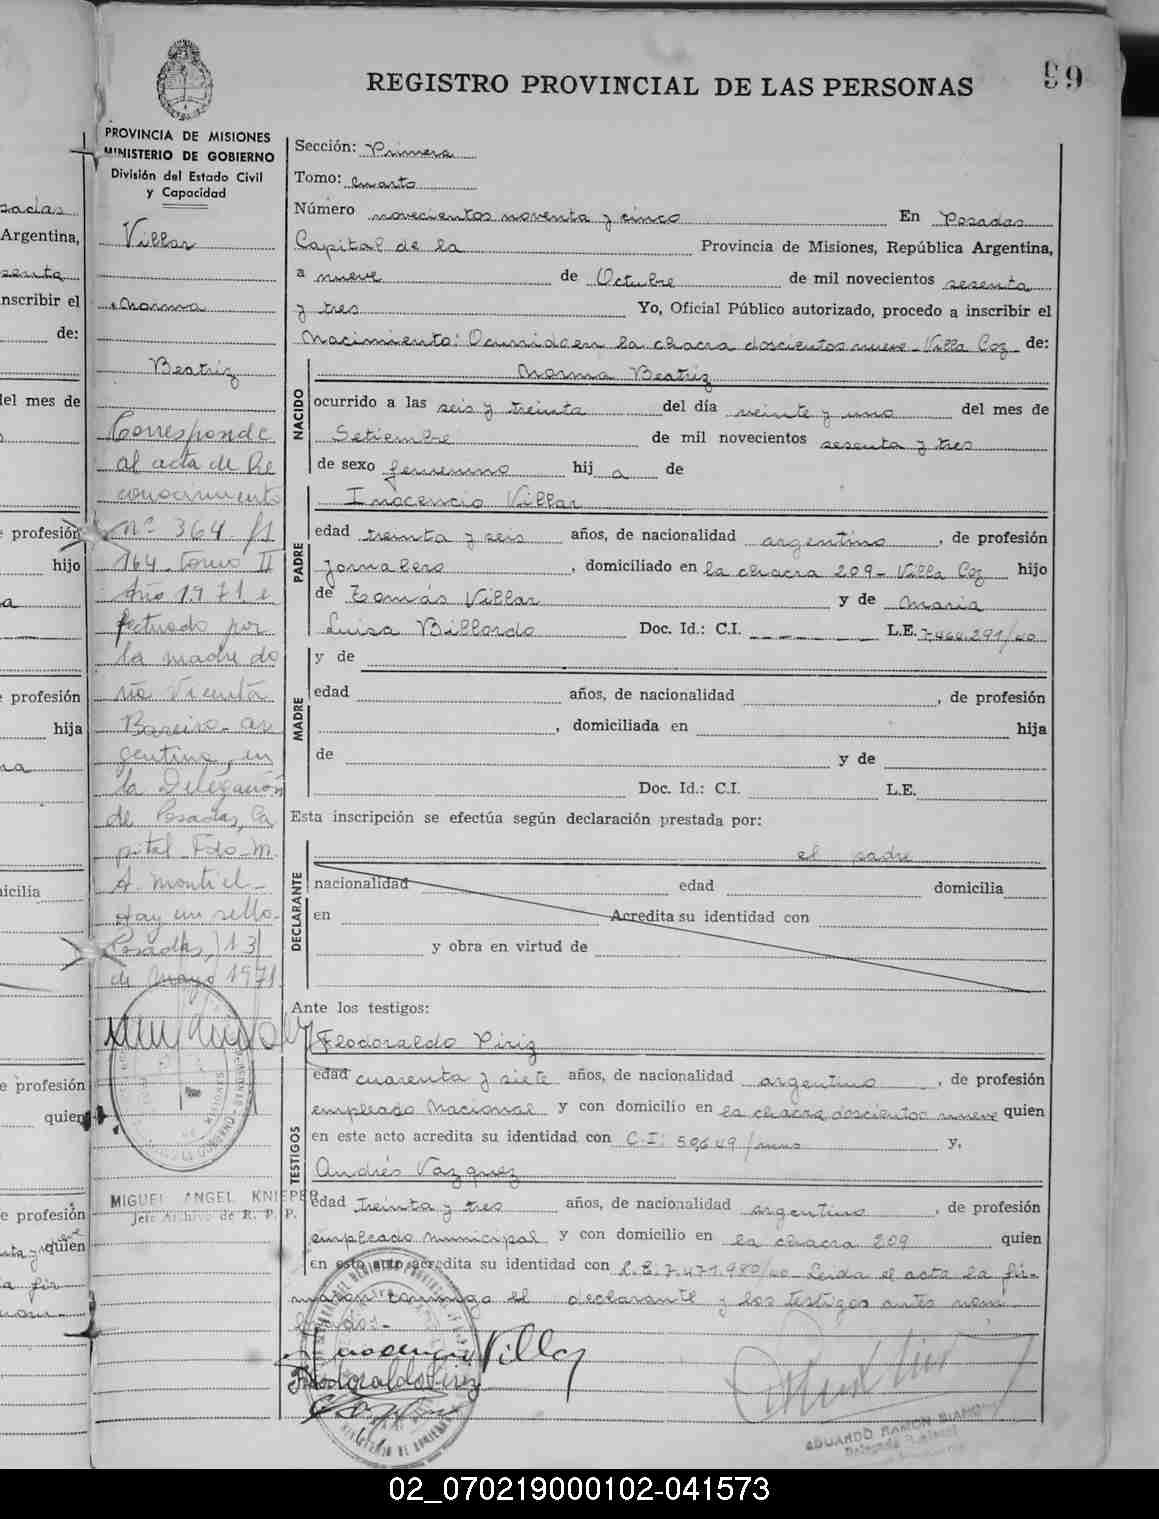 REGISTRO PROVINCIAL DE LAS PERSONAS
99
PROVINCIA DE MISIONES
MINISTERIO DE GOBIERNO
División del Estado Civil
y Capacidad
Villar
Norma
Beatriz
Corresponde
al acta de Re
conocimiento
nº 364 fs
164 tomo II
Año 1971 e
fectuado por
la madre do
ña Vicenta
Bareiro - ar
gentina, en
la Delegación
de Posadas, Ca
pital - Fdo - M.
A. Montiel -
Hay un sello.
Posadas, 13
de mayo 1971.
MIGUEL ANGEL KNIEPER
Jefe Archivo de R. P. P.
Sección: Primera
Tomo: Cuarto
Número novecientos noventa y cinco En Posadas
Capital de la Provincia de Misiones, República Argentina,
a nueve de Octubre de mil novecientos sesenta
y tres Yo, Oficial Público autorizado, procedo a inscribir el
Nacimiento: Ocurrido en la chacra doscientos nueve - Villa Coz de:
Norma Beatriz
NACIDO
ocurrido a las seis y treinta del día veinte y uno del mes de
Setiembre de mil novecientos sesenta y tres
de sexo femenino hij a de
Inocencio Villar
PADRE
edad treinta y seis años, de nacionalidad argentino, de profesión
Jornalero, domiciliado en la chacra 209 - Villa Coz hijo
de Tomás Villar y de Maria
Luisa Billordo Doc. Id.: C.I. L.E. 7.464.291/40
y de
MADRE
edad años, de nacionalidad, de profesión
, domiciliada en hija
de y de
Doc. Id.: C.I. L.E.
Esta inscripción se efectúa según declaración prestada por:
el padre
DECLARANTE
nacionalidad edad domicilia
en Acredita su identidad con
y obra en virtud de
Ante los testigos:
Flodoraldo Piriz
TESTIGOS
edad cuarenta y siete años, de nacionalidad argentino, de profesión
empleado Nacional y con domicilio en la chacra doscientos nueve quien
en este acto acredita su identidad con C.I: 59649/mns y,
Andrés Vazquez
edad Treinta y tres años, de nacionalidad argentino, de profesión
empleado Municipal y con domicilio en la chacra 209 quien
en este acto acredita su identidad con L.E. 7.471.980/40 Leida el acta la fir-
maron conmigo el declarante y los testigos antes nom
brados.-
Inocencio Villar
Flodoraldo Piriz
EDUARDO RAMON
02_070219000102-041573